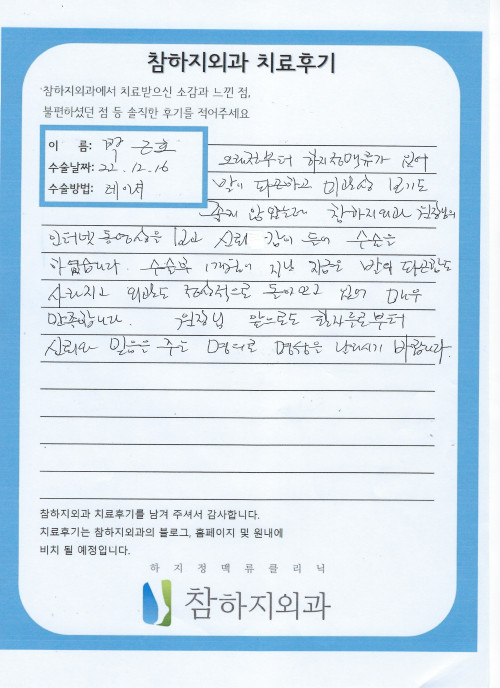 참하지외과 치료후기
참하지외과에서 치료받으신 소감과 느낀 점,
불편하셨던 점 등 솔직한 후기를 적어주세요
이 름: 근호
수술날짜: 22.12.16
수술방법: 레이저
오래전부터 하지정맥류가 있어
발이 피곤하고 미관상 보기도
좋지 않았는데 참하지외과 원장님의
인터넷 동영상을 보고 신뢰 감이 들어 수술을
하였습니다. 수술후 1개월이 지난 지금은 발의 피곤함도
사라지고 외관도 정상적으로 돌아오고 있어 매우
만족합니다. 원장님 앞으로도 환자들로부터
신뢰와 믿음을 주는 명의로 명성을 날리시기 바랍니다.
참하지외과 치료후기를 남겨 주셔서 감사합니다.
치료후기는 참하지외과의 블로그, 홈페이지 및 원내에
비치 될 예정입니다.
하지정맥류클리닉
참하지외과